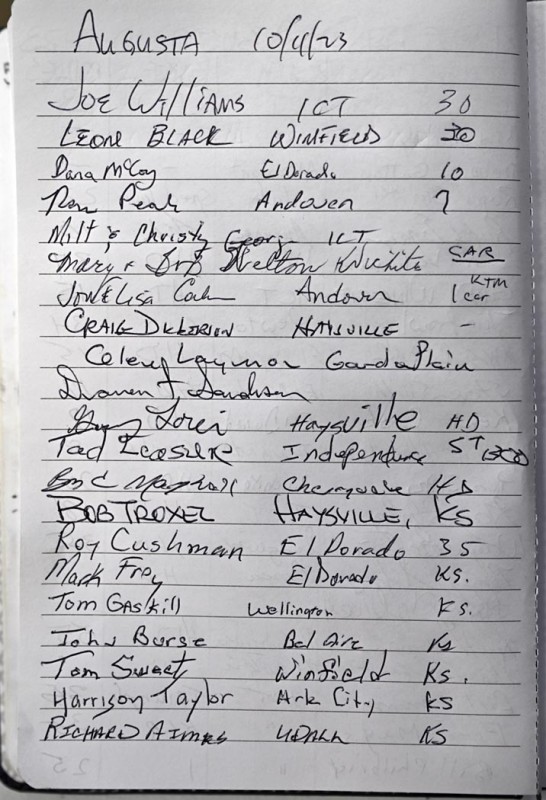 AUGUSTA 10/11/23
JOE WILLIAMS ICT 30
LEONE BLACK WINFIELD 30
Dana McCoy El Dorado 10
Ron Peak Andover 7
Milt & Christy George ICT
Mary & Bob Welton Wichita CAR
Jon & Lisa Andover 1 car KTM
CRAIG HAYSVILLE -
Garden Plain
Haysville HD
Tad Independence ST 1300
Cherryvale HD
BOB TROXEL HAYSVILLE, KS
Roy Cushman El Dorado 35
Mark Frey El Dorado KS.
Tom Gaskill Wellington KS.
John Burse Bel Aire KS
Tom Sweet Winfield KS.
Harrison Taylor Ark City KS
RICHARD UDALL KS